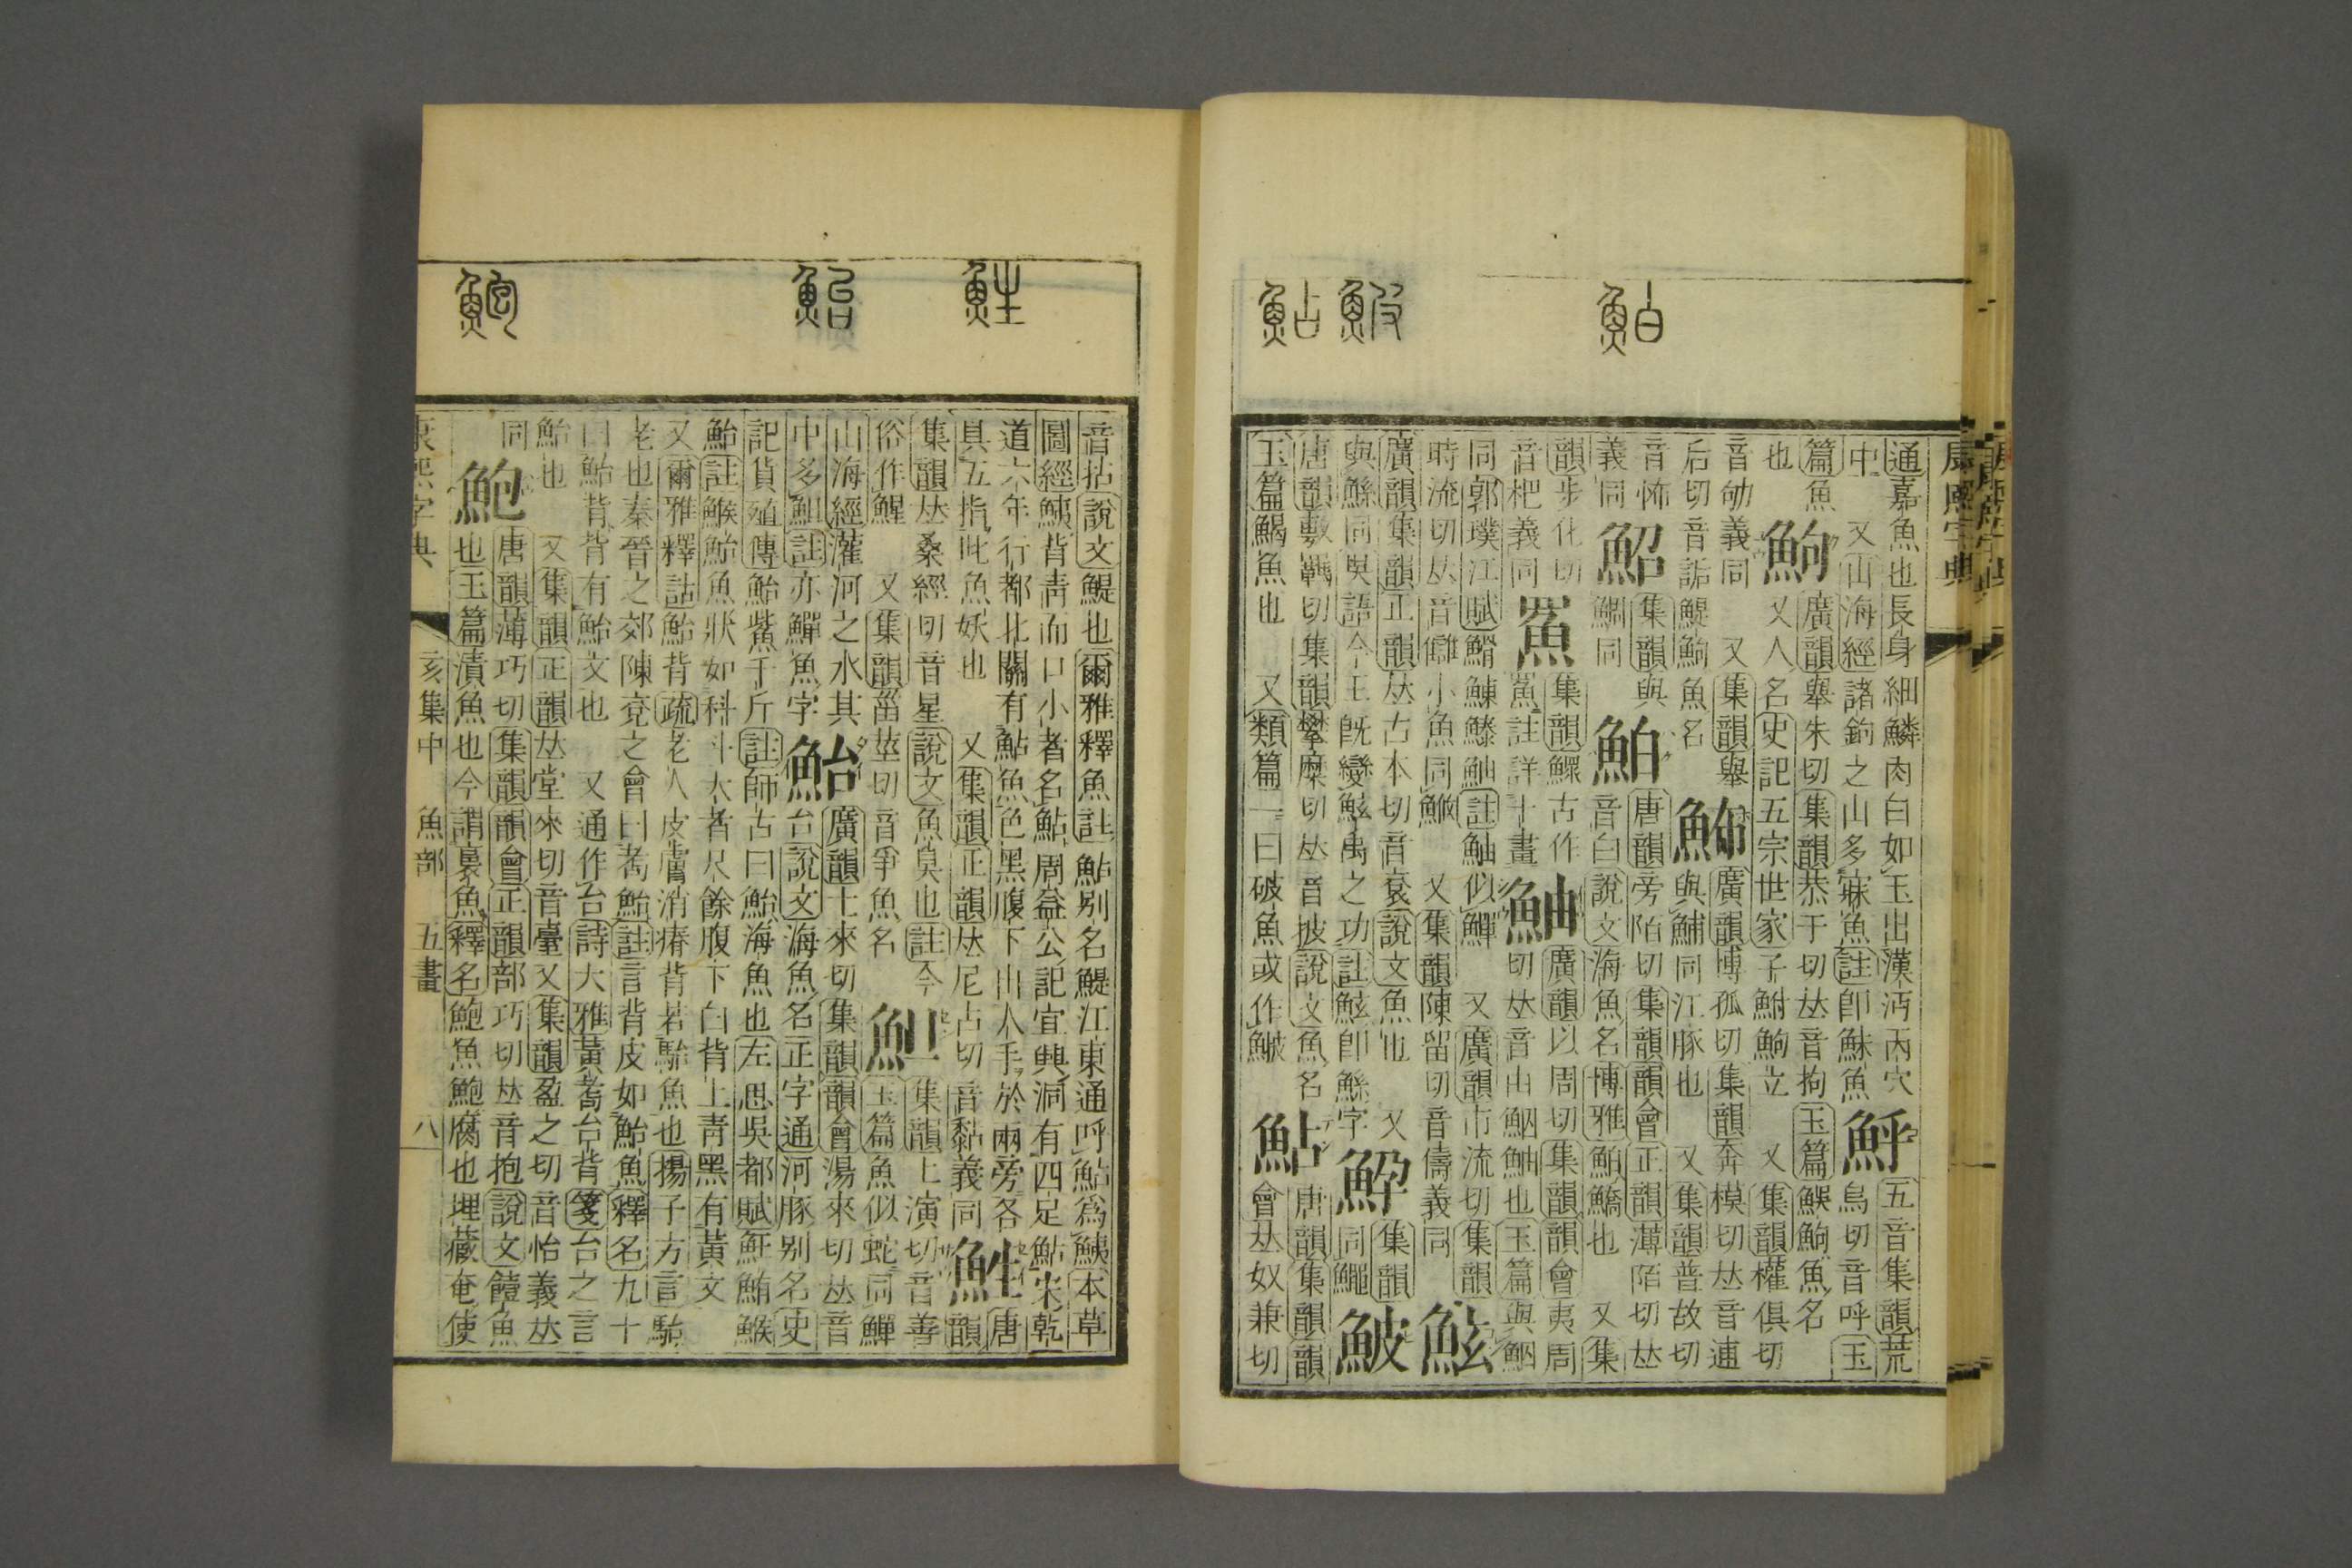 康熙字典
鮊
鮍
鮎
通嘉魚也長身細鱗肉白如玉出漢沔丙穴
中　又山海經諸鉤之山多寐魚註卽鮇魚
五音集韻荒
烏切音呼玉
篇魚
也
鮈
廣韻舉朱切集韻恭于切𠀤音拘玉篇䱌鮈魚名
又人名史記五宗世家子鮒鮈立　又集韻權俱切
音劬義同　又集韻舉
后切音詬鯷鮈魚名
廣韻博孤切集韻奔模切𠀤音逋
與鯆同江豚也　又集韻普故切
音怖
義同
鮉
集韻與
鯛同
鮊
唐韻旁陌切集韻韻會正韻薄陌切𠀤
音白說文海魚名博雅鮊鱎也　又集
韻步化切
音杷義同
集韻鰥古作
註詳十畫
鮋
廣韻以周切集韻韻會夷周
切𠀤音由鮂鮋也玉篇與鮂
同郭璞江賦鰊鮋註鮋似鱓　又廣韻市流切集韻
時流切𠀤音讎小魚同　又集韻陳留切音儔義同
鮌
廣韻集韻正韻𠀤古本切音袞說文魚也　又
與鯀同吳語今王旣變鮌禹之功註鮌卽鯀字
䱆
集韻
同鱦
鮍
唐韻敷羈切集韻攀糜切𠀤音披說文魚名
玉篇鰑魚也　又類篇一曰破魚或作
鮎
唐韻集韻韻
會𠀤奴兼切
鮏
鮐
鮑
音拈說文鯷也爾雅釋魚註鮎別名鯷江東通呼鮎爲鮧本草
圖經鮧背靑而口小者名鮎周益公記宜興洞有四足鮎宋乾
道六年行都北關有鮎魚色黑腹下出人手於兩旁各
具五指此魚妖也　又集韻正韻𠀤尼占切音黏義同
鮏
唐
韻
集韻𠀤桑經切音星說文魚臭也註今
俗作鯹　又集韻甾莖切音爭魚名
䱇
集韻上演切音善
玉篇魚似蛇同鱓
山海經灌河之水其
中多䱇註亦鱓魚字
鮐
廣韻土來切集韻韻會湯來切𠀤音
台說文海魚名正字通河豚別名史
記貨殖傳鮐鮆千斤註師古曰鮐海魚也左思吳都賦鮪鯸
鮐註鯸鮐魚狀如科斗大者尺餘腹下白背上靑黑有黃文
又爾雅釋詁鮐背疏老人皮膚消瘠背若鮐魚也揚子方言鮐
老也秦晉之郊陳兗之會曰耇鮐註言背皮如鮐魚釋名九十
曰鮐背背有鮐文也　又通作台詩大雅黃耇台背箋台之言
鮐也　又集韻正韻𠀤堂來切音臺又集韻盈之切音怡義𠀤
同
鮑
唐韻薄巧切集韻韻會正韻部巧切𠀤音抱說文饐魚
也玉篇漬魚也今謂裛魚釋名鮑魚鮑腐也埋藏奄使
康熙字典　亥集中　魚部　五畫　八